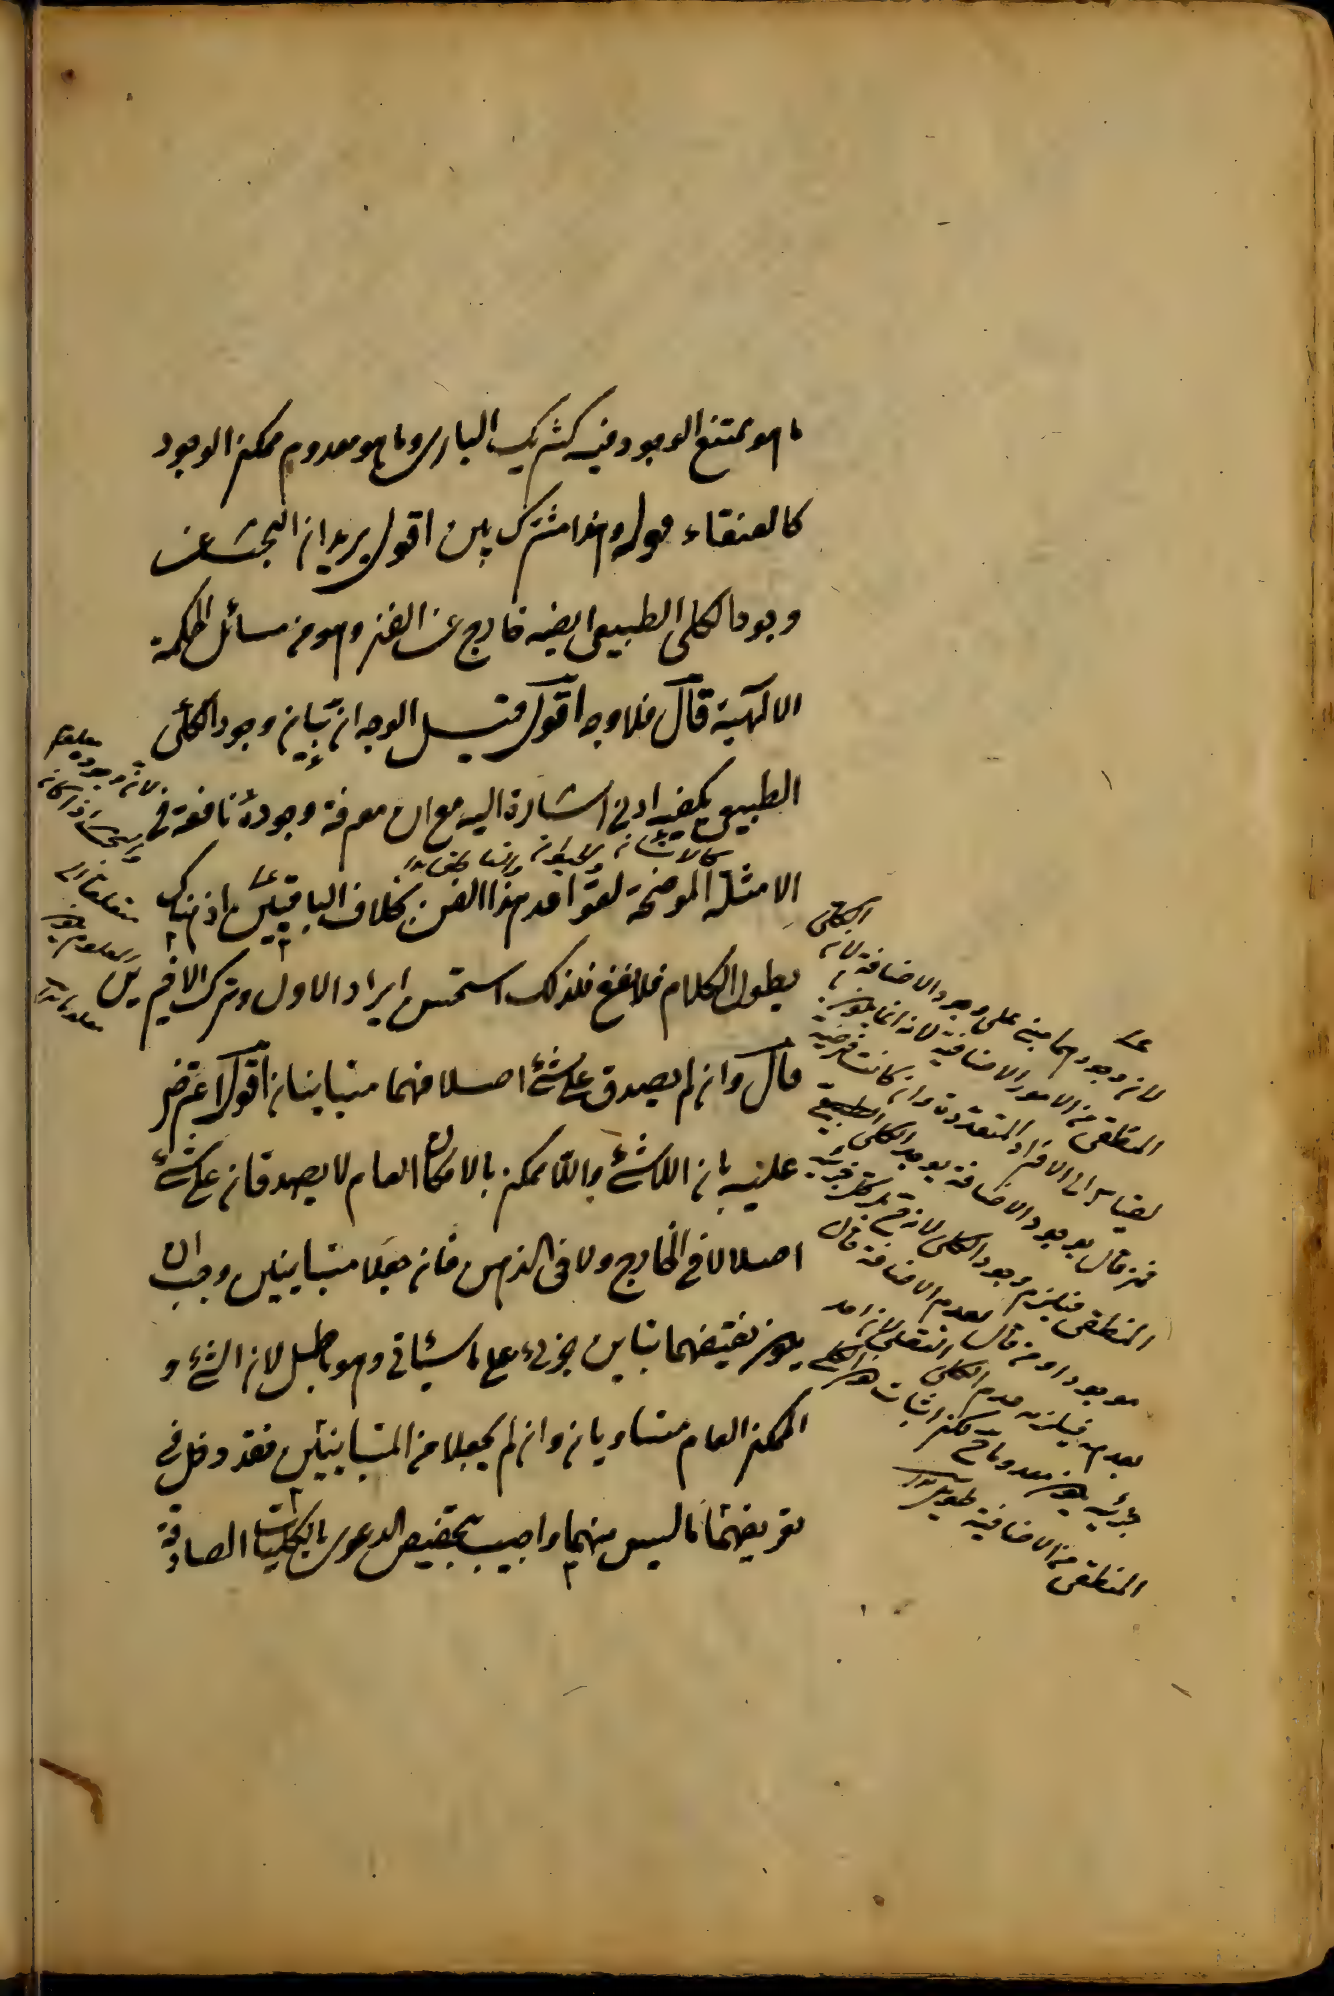 ما هو ممتنع الوجود فيه كشريك الباري وما هو معدوم ممكن الوجود
كالعنقاء قوله وهذا مشترك بين اقول يريد ان البحث عن
وجود الكلي الطبيعي ايضا خارج عن الفن وهو من مسائل الحكمة
الالهية قال فلا وجه اقول قيل الوجه ان بيان وجود الكلي
الطبيعي يكفيه ادنى اشارة اليه مع ان معرفة وجوده نافعة في
الامثلة الموضحة لقواعد هذا الفن بخلاف الباقيين اذ هناك
يطول الكلام فلا نفع فلذلك استحسن ايراد الاول وترك الاخيرين
قال وان لم يصدق على شئ اصلا فهما متباينان اقول اعترض
عليه بان اللاشئ واللاممكن بالامكان العام لا يصدقان على شئ
اصلا لا في الخارج ولا في الذهن فان جعلا متباينين وجب ان
يكون نقيضهما تباين جزئي على ما سيأتي وهو باطل لان الشئ و
الممكن العام متساويان وان لم يجعلا من المتباينين فقد دخل في
تعريفهما ما ليس منهما واجيب بتخصيص الدعوى بالكليات الصادقة
لان وجودهما مبني على وجود الاضافة لان الكلي
المنطقي من الامور الاضافية لانه انما يكون
بالقياس الى الافراد المتعددة وان كانت فرضية
فمن قال بوجود الاضافة يوجد الكلي
المنطقي فيلزم وجود الكلي
موجودا ومن قال بعدم الاضافة قال
بعدمه فيلزمه عدم الكلي العقلي لان احد
جزئيه يكون معدوما
المنطقي من الاضافية